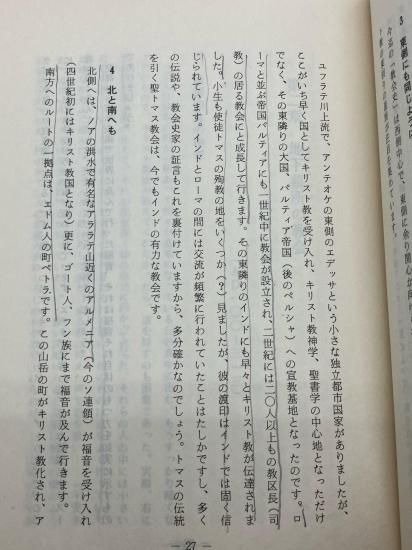 3 東側にも同じよう
今迄の「教会史」は西側中心で、東側に余り関心が向
ユフラテ川上流で、アンテオケの東側のエデッサという小さな独立都市国家がありましたが、
ここがいち早く国としてキリスト教を受け入れ、キリスト教神学、聖書学の中心地となっただけ
でなく、その東隣りの大国、パルティア帝国(後のペルシャ)への宣教基地となったのです。ロ
ーマと並ぶ帝国パルティアにも一世紀中に教会が設立され、二世紀には二〇人以上もの教区長(司
教)の居る教会にと成長して行きます。その東隣りのインドにも早々とキリスト教が伝達されま
した。小生も使徒トマスの殉教の地をいくつか(?)見ましたが、彼の渡印はインドでは固く信
じられています。インドとローマの間には交流が頻繁に行われていたことはたしかですし、多く
の伝説や、教会史家の証言もこれを裏付けていますから、多分確かなのでしょう。トマスの伝統
を引く聖トマス教会は、今でもインドの有力な教会です。
4 北と南へも
北側へは、ノアの洪水で有名なアララテ山近くのアルメニア(今のソ連領)が福音を受け入れ
(四世紀初にはキリスト教国となり)更に、ゴート人、フン族にまで福音が及んで行きます。
南方へのルートの一拠点は、エドム人の町ペトラです。この山岳の町がキリスト教化され、ア
— 27 —